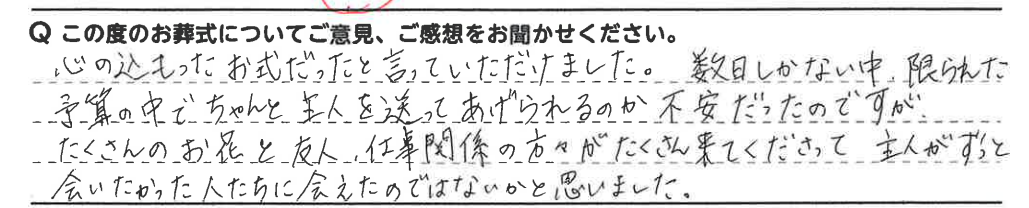 Q この度のお葬式についてご意見、ご感想をお聞かせください。
心の込もったお式だったと言っていただけました。数日しかない中、限られた
予算の中でちゃんと主人を送ってあげられるのか不安だったのですが、
たくさんのお花と友人、仕事関係の方々がたくさん来てくださって主人がずっと
会いたかった人たちに会えたのではないかと思いました。